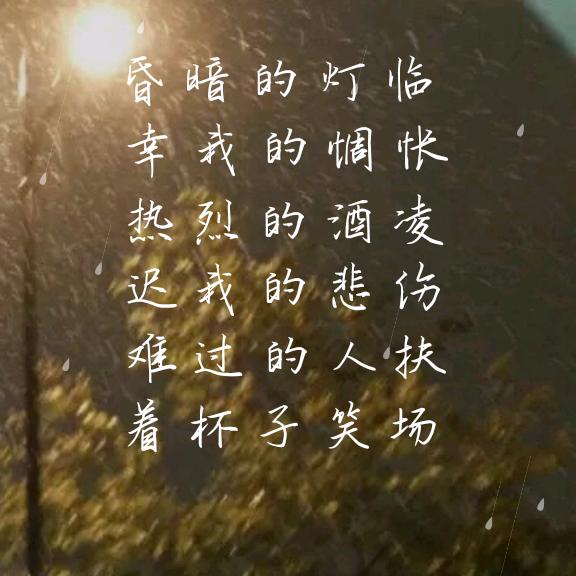 昏暗的灯临
幸我的惆怅
热烈的酒凌
迟我的悲伤
难过的人扶
着杯子笑场